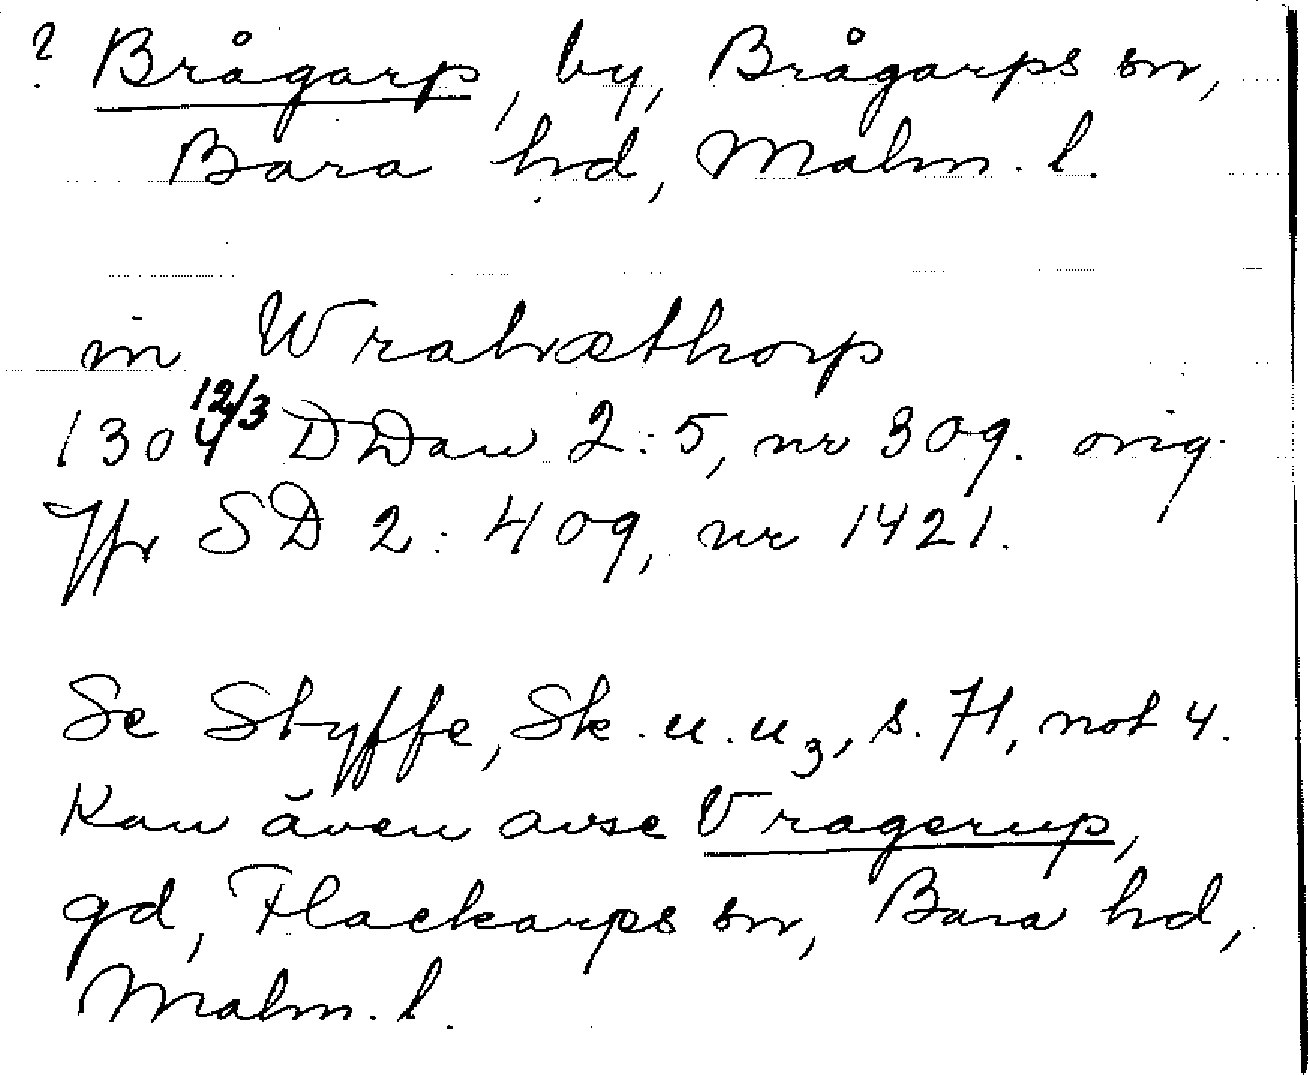 ? Brågarp, by, Brågarps sn,
Bara hd, Malm. l.
in Wralvæthorp
1304 12/3 DDan 2:5, nr 309. orig.
Jfr SD 2:409, nr 1421.
Se Styffe, Sk. u. u3, s. 71, not 4.
Kan även avse Vragerup,
gd, Flackarps sn, Bara hd,
Malm. l.